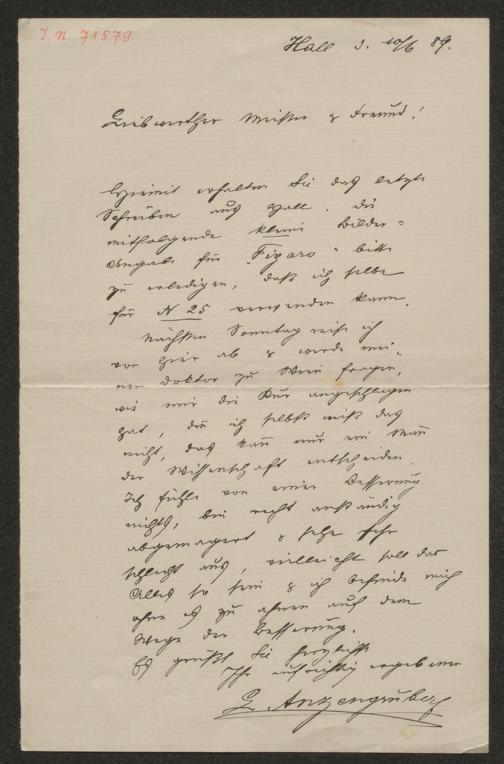 I. N. 71579
Hall d. 10/6 89.
Liebwerther Meister & Freund!
Hiermit erhalten Sie das letzte
Schreiben aus Hall. Die
mitfolgende kleine Bilder-
Angabe für "Figaro" bitte
zu erledigen, daß ich selbe
für N 25 verwenden kann.
Nächsten Sonntag reise ich
von hier ab & werde mei-
nen Doktor zu Wien fragen,
wie mir die Kur angeschlagen
hat, denn ich selbst weiß das
nicht, das kann nur ein Mann
der Wissenschaft entscheiden.
Ich fühle von einer Besserung
nichts, bin recht anständig
abgemagert & sehe sehr
schlecht aus, vielleicht soll das
Alles so sein & ich befinde mich
ohne es zu ahnen auf dem
Wege der Besserung.
Es grüßt Sie herzlichst
Ihr aufrichtig ergebener
L. Anzengruber